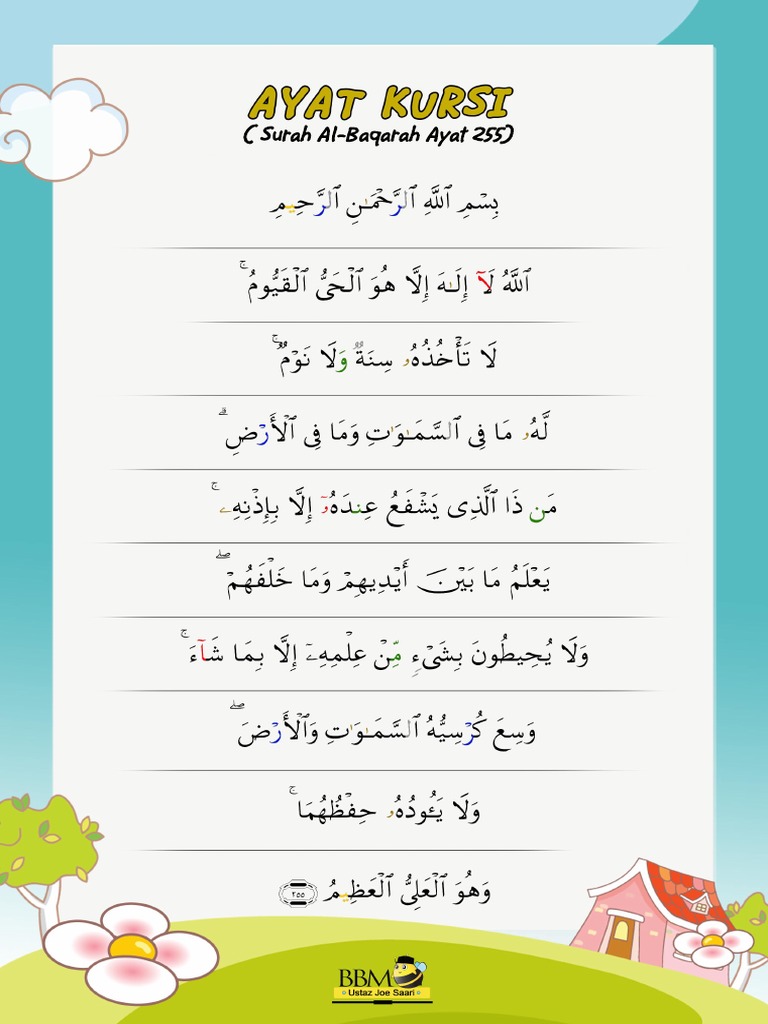 AYAT KURSI
( Surah Al-Baqarah Ayat 255)
بِسۡمِ ٱللَّهِ ٱلرَّحۡمَـٰنِ ٱلرَّحِيمِ
ٱللَّهُ لَآ إِلَـٰهَ إِلَّا هُوَ ٱلۡحَىُّ ٱلۡقَيُّومُۚ
لَا تَأۡخُذُهُۥ سِنَةࣱ وَلَا نَوۡمࣱۚ
لَّهُۥ مَا فِى ٱلسَّمَـٰوَ ٰتِ وَمَا فِى ٱلۡأَرۡضِۗ
مَن ذَا ٱلَّذِى يَشۡفَعُ عِندَهُۥۤ إِلَّا بِإِذۡنِهِۦۚ
يَعۡلَمُ مَا بَيۡنَ أَيۡدِيهِمۡ وَمَا خَلۡفَهُمۡۖ
وَلَا يُحِيطُونَ بِشَىۡءࣲ مِّنۡ عِلۡمِهِۦۤ إِلَّا بِمَا شَاۤءَۚ
وَسِعَ كُرۡسِيُّهُ ٱلسَّمَـٰوَ ٰتِ وَٱلۡأَرۡضَۖ
وَلَا يَـُٔودُهُۥ حِفۡظُهُمَاۚ
وَهُوَ ٱلۡعَلِىُّ ٱلۡعَظِيمُ ٢٥٥
BBM
Ustaz Joe Saari